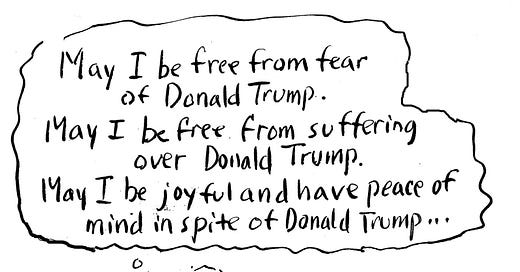 May I be free from fear
of Donald Trump.
May I be free from suffering
over Donald Trump.
May I be joyful and have peace of
mind in spite of Donald Trump...